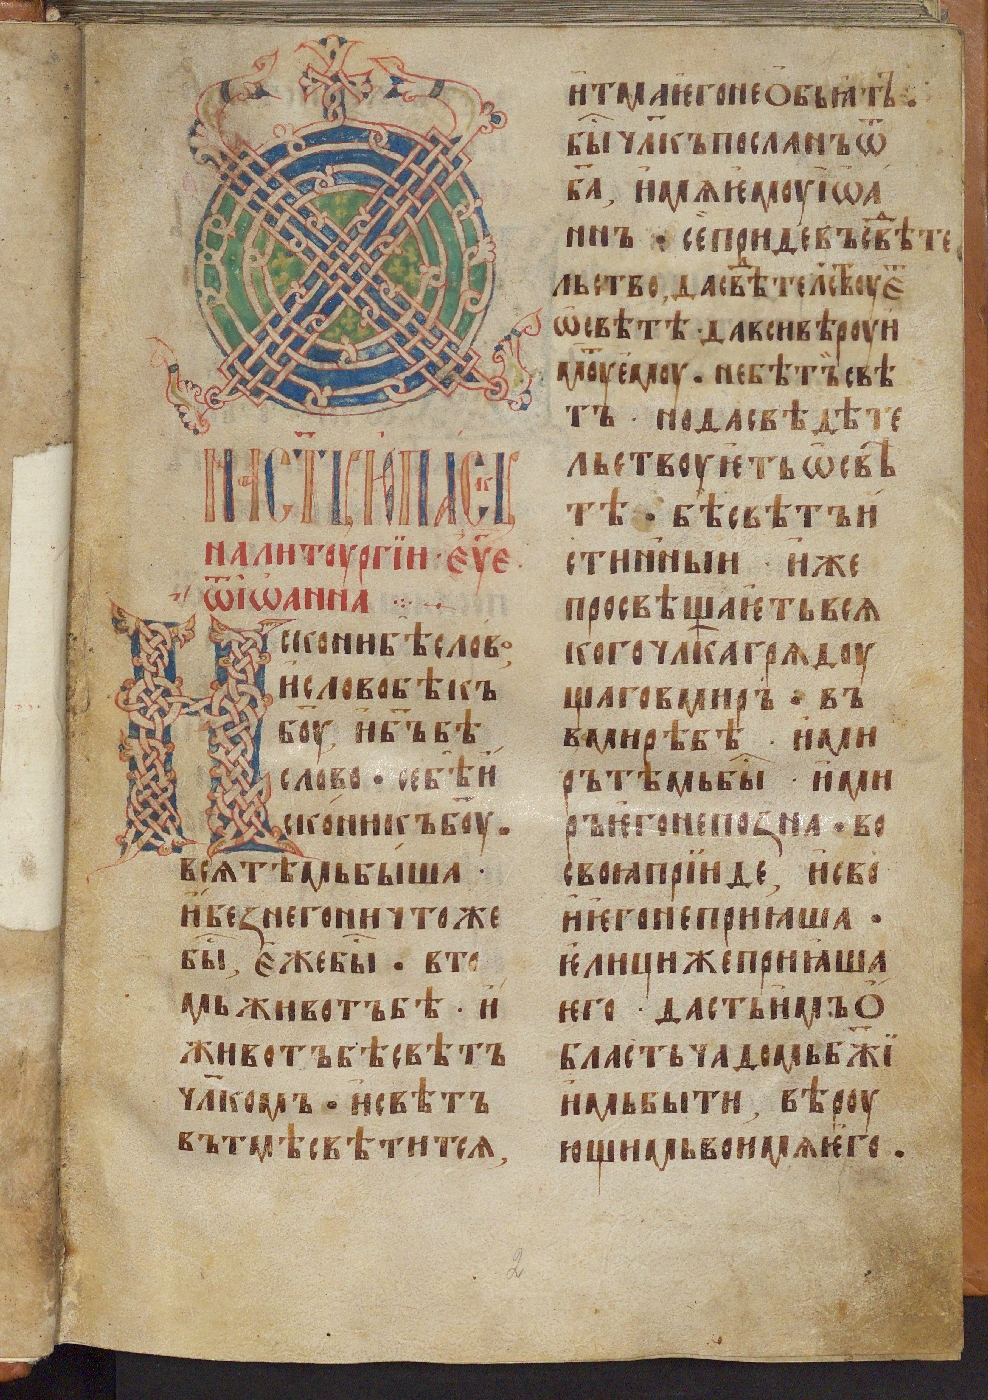 на литꙋргїи · еѵⷢ҇е
ѿ іѡанна
Искони бѣ слово
и слово бѣ къ
бꙋ҃, и бъ҃ бѣ
слово · се бѣ и
скони къ бꙋ҃ ·
всѧ тѣмь быша ·
и без него ничтоже
бы҇, еже бы҇ · в то
мь животъ бѣ · и
животъ бѣ свѣтъ
чл҃комъ · и свѣтъ
въ тмѣ свѣтитсѧ,
и тма ѥго не обьꙗтъ ·
бы҇ чл҃къ посланъ ѿ
ба҃, имѧ ѥмоу іѡа
ннъ · се приде въ свѣдѣте
льство, да свѣдѣтельствоуѥть
ѡ свѣтѣ · да вси вѣроу и
моуть ѥмоу · не бѣ тъ свѣ
тъ · но да свѣдѣте
льствоуѥть ѡ свѣ
тѣ · бѣ свѣтъ и
стинныи иже
просвѣщаѥть всѧ
кого чл҃ка грѧдоу
щаго в миръ · въ
в мирѣ бѣ · и ми
ръ тѣмь бы҇ · и ми
ръ ѥго не позна · во
своꙗ прїиде, и сво
и ѥго не приꙗша ·
ѥлици же приꙗша
ѥго · дасть имъ о
бласть чадомъ бж҃ї
имь быти, вѣроу
ющимь во имѧ ѥго ·
2